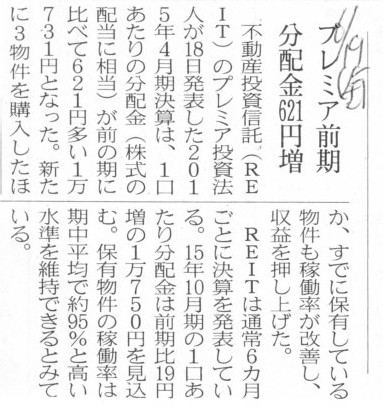 6/19
プレミア前期
分配金621円増
不動産投資信託(RE
IT)のプレミア投資法
人が18日発表した201
5年4月期決算は、1口
あたりの分配金(株式の
配当に相当)が前の期に
比べて621円多い1万
731円となった。新た
に3物件を購入したほ
か、すでに保有している
物件も稼働率が改善し、
収益を押し上げた。
REITは通常6カ月
ごとに決算を発表してい
る。15年10月期の1口あ
たり分配金は前期比19円
増の1万750円を見込
む。保有物件の稼働率は
期中平均で約95%と高い
水準を維持できるとみて
いる。